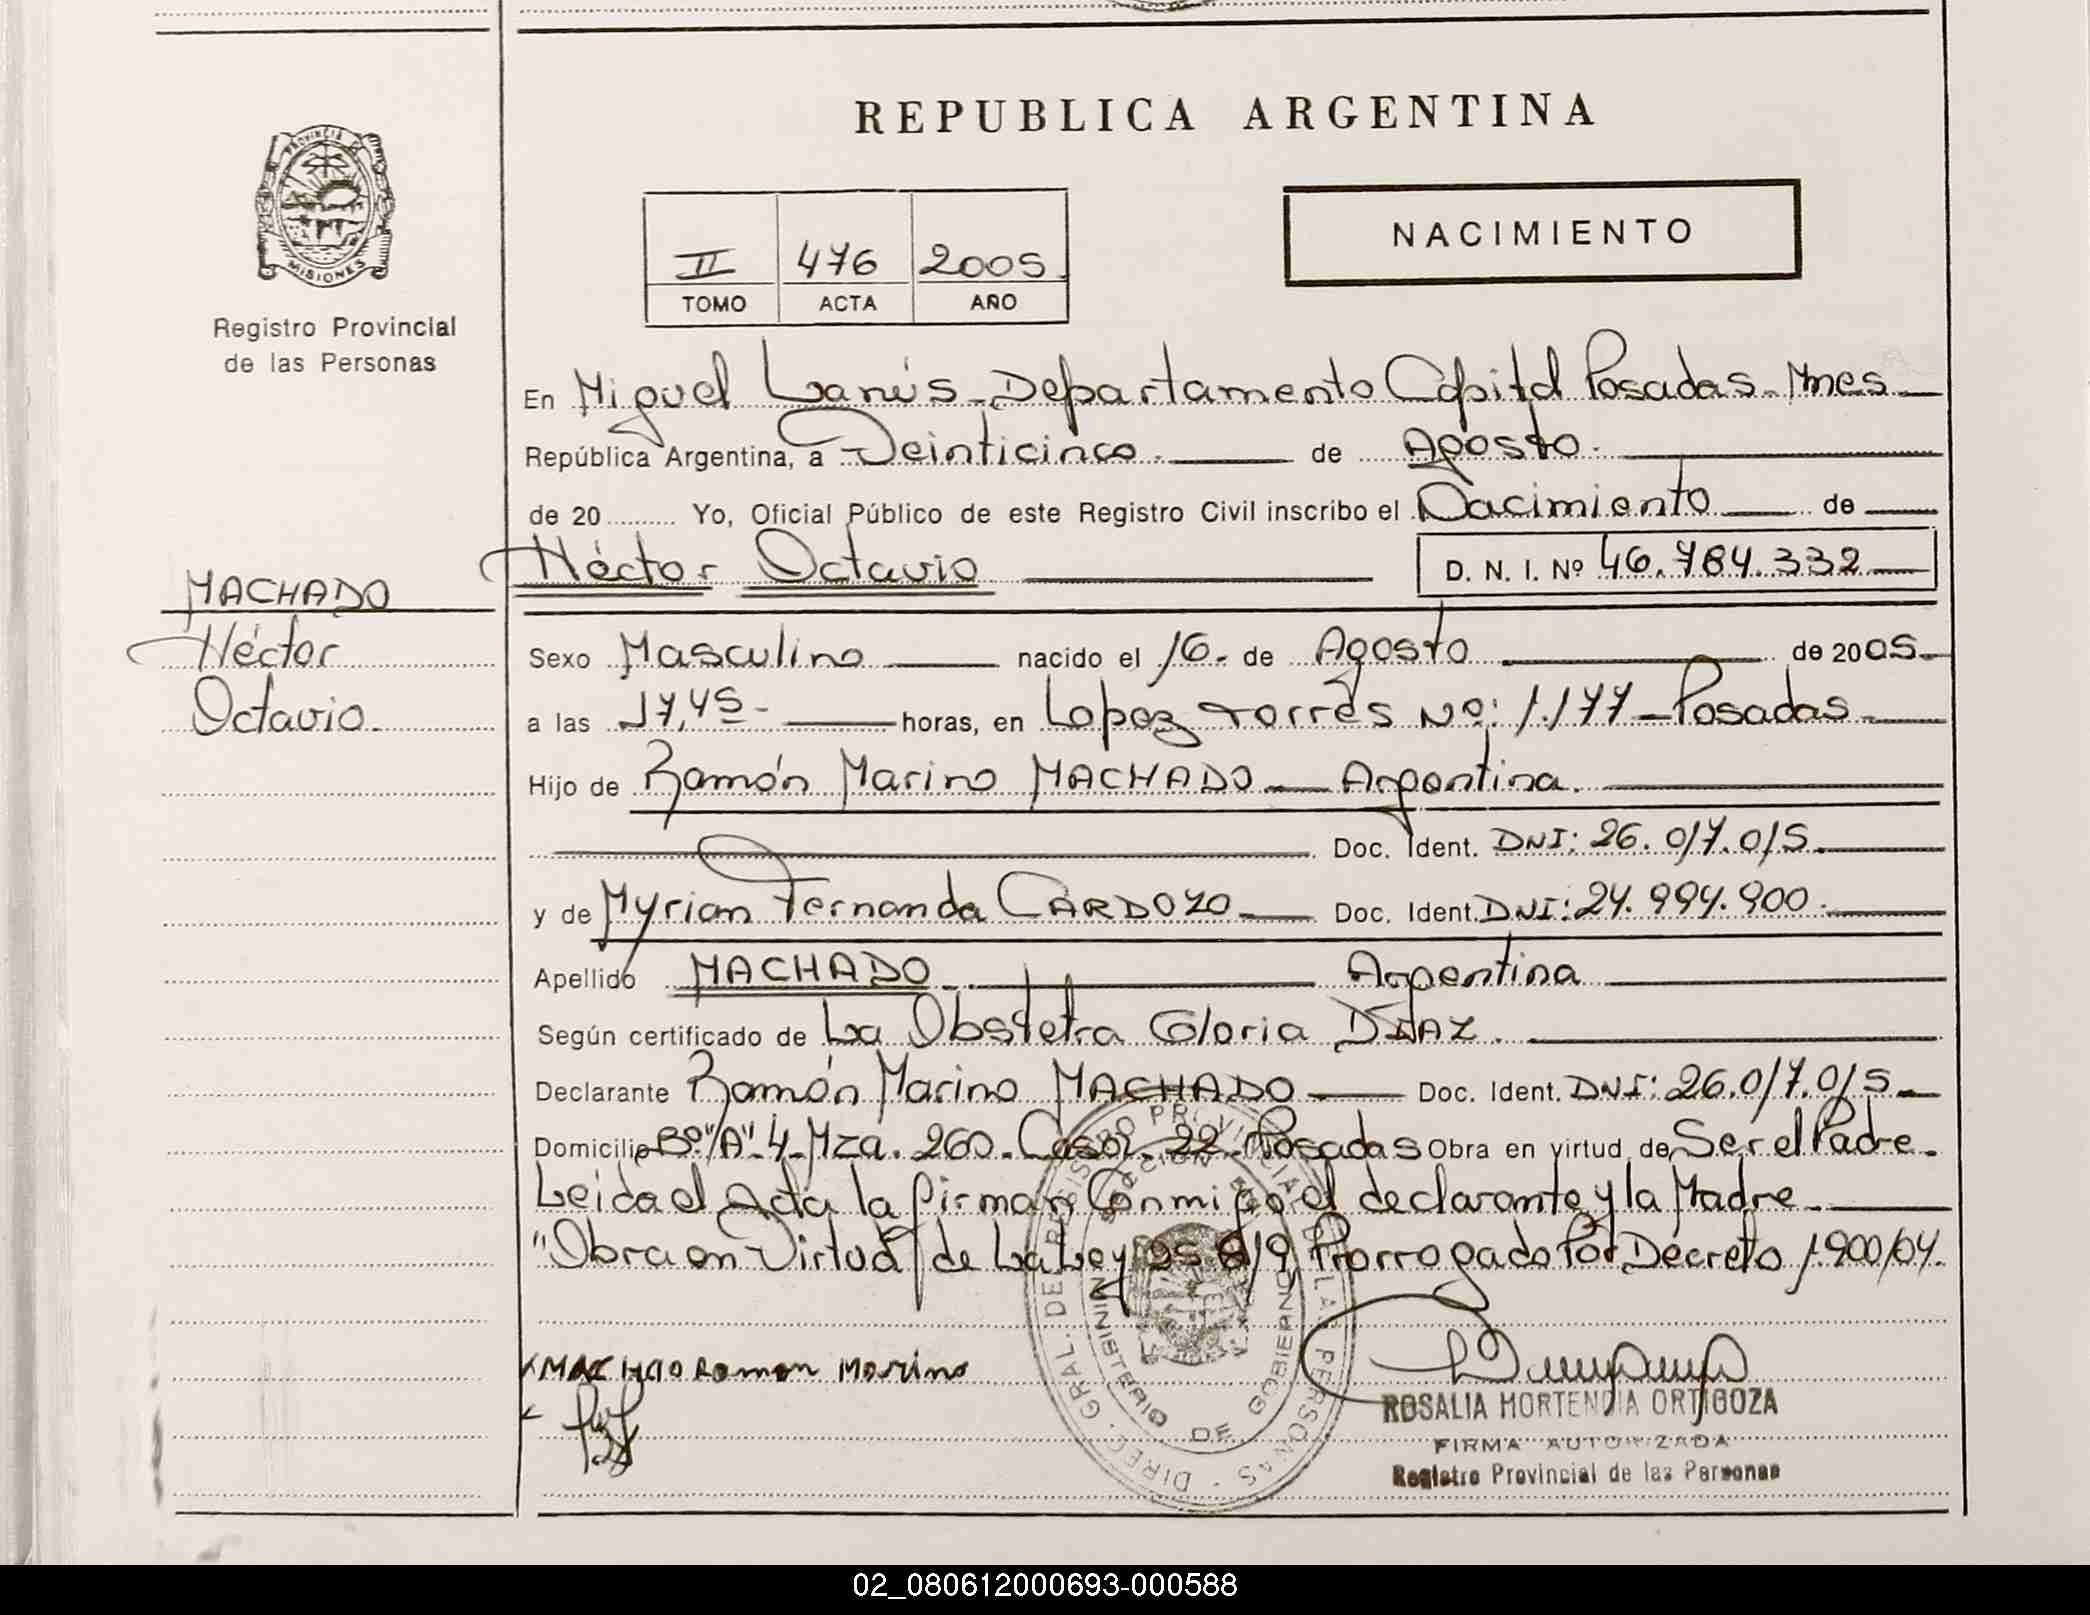 REPUBLICA ARGENTINA
PROVINCIA DE
MISIONES
Registro Provincial
de las Personas
NACIMIENTO
II 476 2005
TOMO ACTA AÑO
En Miguel Lanús - Departamento Capital Posadas - Mnes
República Argentina, a Veinticinco - de Agosto -
de 20 Yo, Oficial Público de este Registro Civil inscribo el Nacimiento de
Héctor Octavio D. N. I. Nº 46.784.332
MACHADO
Héctor
Octavio
Sexo Masculino nacido el 16 - de Agosto de 2005
a las 17,45 - horas, en Lopez Torres Nº: 1.177 - Posadas
Hijo de Ramón Marino MACHADO Argentina.
Doc. Ident. DNI: 26.017.015
y de Myrian Fernanda CARDOZO Doc. Ident. DNI: 24.994.900
Apellido MACHADO Argentina
Según certificado de La Obstetra Gloria DIAZ.
Declarante Ramón Marino MACHADO Doc. Ident. DNI: 26.017.015
Domicilio Bº "A" - 4 - Mza. 260 - Casa: 22 - Posadas Obra en virtud de Ser el Padre.
Leida el Acta la firman Conmigo el declarante y la Madre
"Obra en Virtud de La Ley 25 819 Prorrogado Por Decreto 1.900/04.
MACHADO Ramon Marino
DIREC. GRAL. DE REGISTRO PROVINCIAL DE LAS PERSONAS
MINISTERIO DE GOBIERNO
ROSALIA HORTENCIA ORTIGOZA
FIRMA AUTORIZADA
Registro Provincial de las Personas
02_080612000693-000588